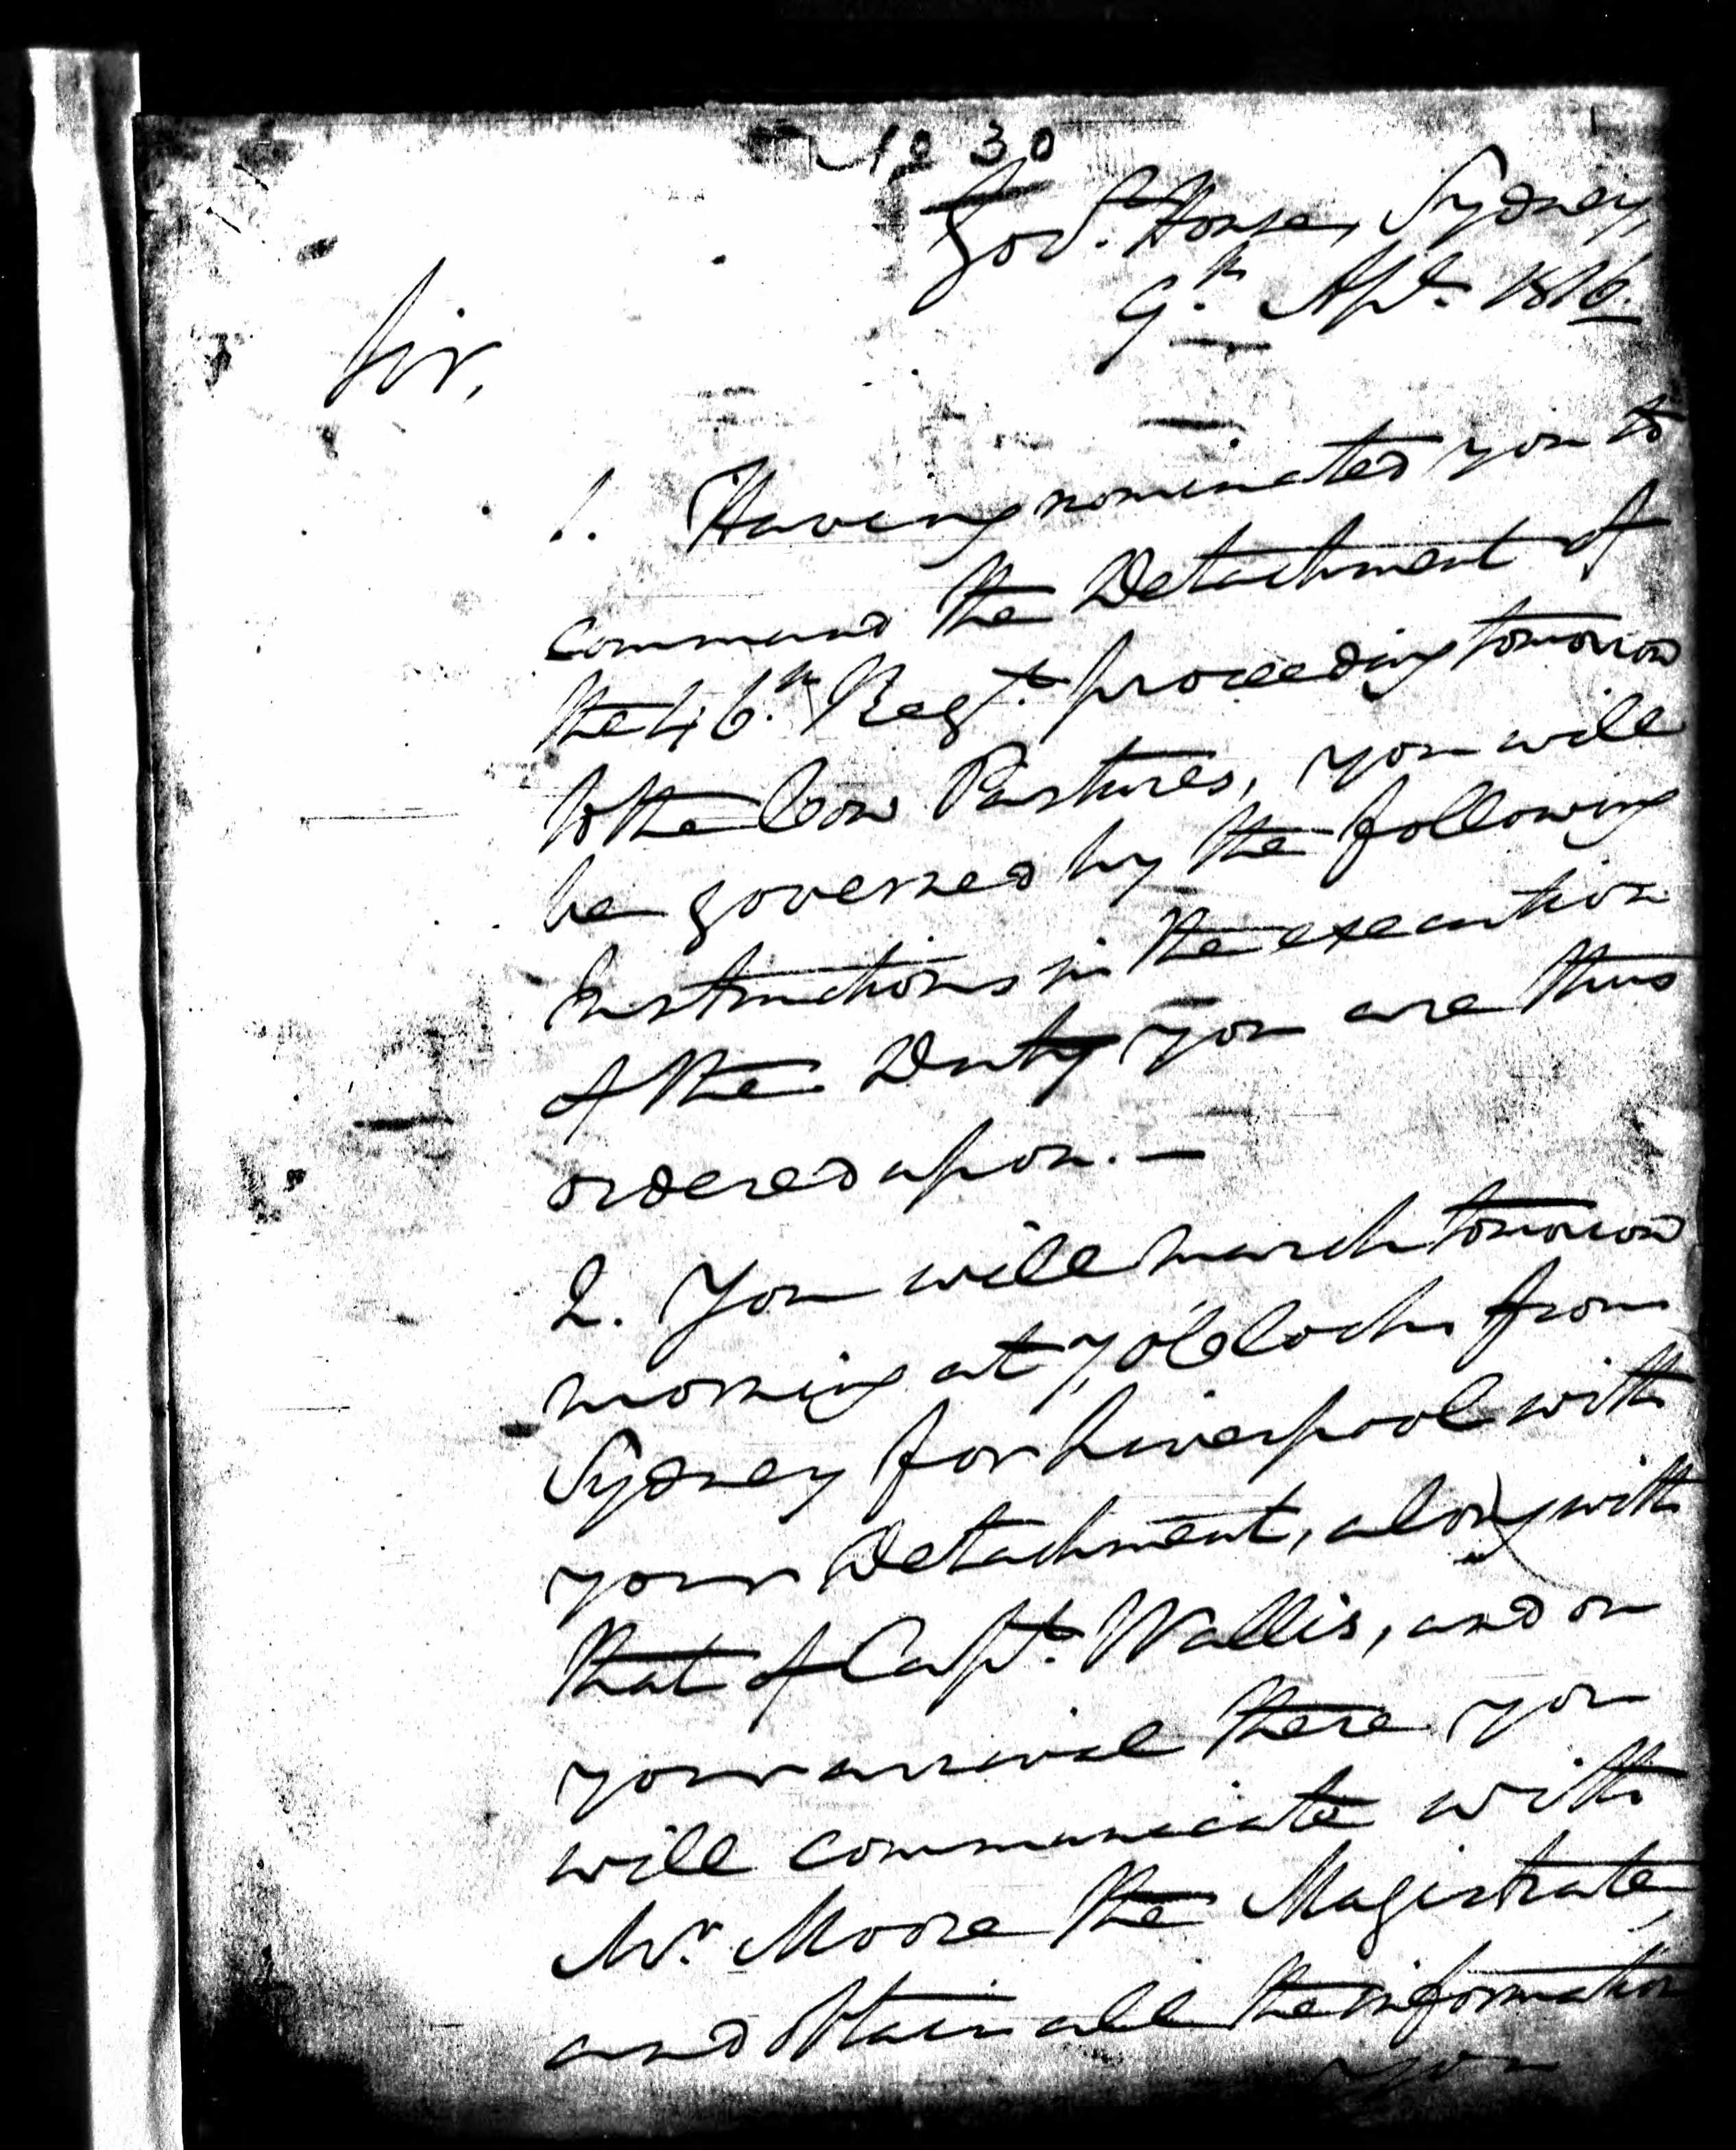 1030
Govt. House, Sydney,
9th. Apl. 1816.
Sir,
1. Having nominated you to
command the Detachment of
the 46th. Regt. proceeding tomorrow
to the Cow Pastures, you will
be governed by the following
Instructions in the execution
of the Duty you are thus
ordered upon. —
2. You will march tomorrow
morning at 7, O'Clock from
Sydney for Liverpool with
your Detachment, along with
that of Capt. Wallis, and on
your arrival there you
will communicate with
Mr. Moore the Magistrate,
and obtain all the information
you